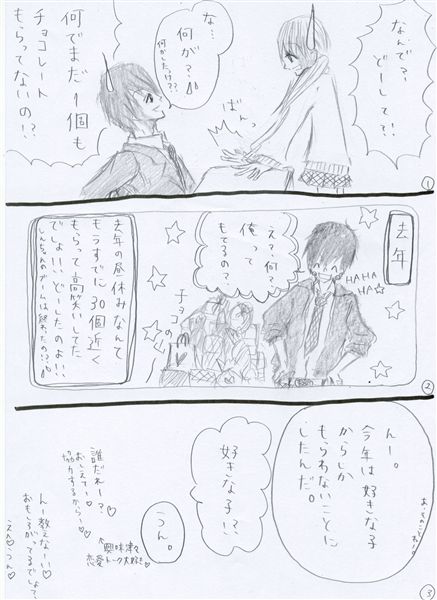 なんで??
どーして!?
な…
何が?
何かしたっけ??
ばんっ
何でまだ1個も
チョコレート
もらってないの!?
①
去年
え?何?
俺って
もてるの?
HAHA
HA☆
チョコの山
去年の昼休みなんて
もうすでに30個近く
もらって高笑いしてた
でしょ!!どーしたのよ!!
しんちゃんのブームは終わったの!?
②
んー。
今年は好きな子
からしか
もらわないことに
したんだ。
好きな子!?
うん。
誰だれー?♡
おしえてー♡
協力するからー♡
↑興味津々
恋愛トーク大好き♡
んー教えなーい♡
おもしろがってるでしょ?
えへへっ♡
③